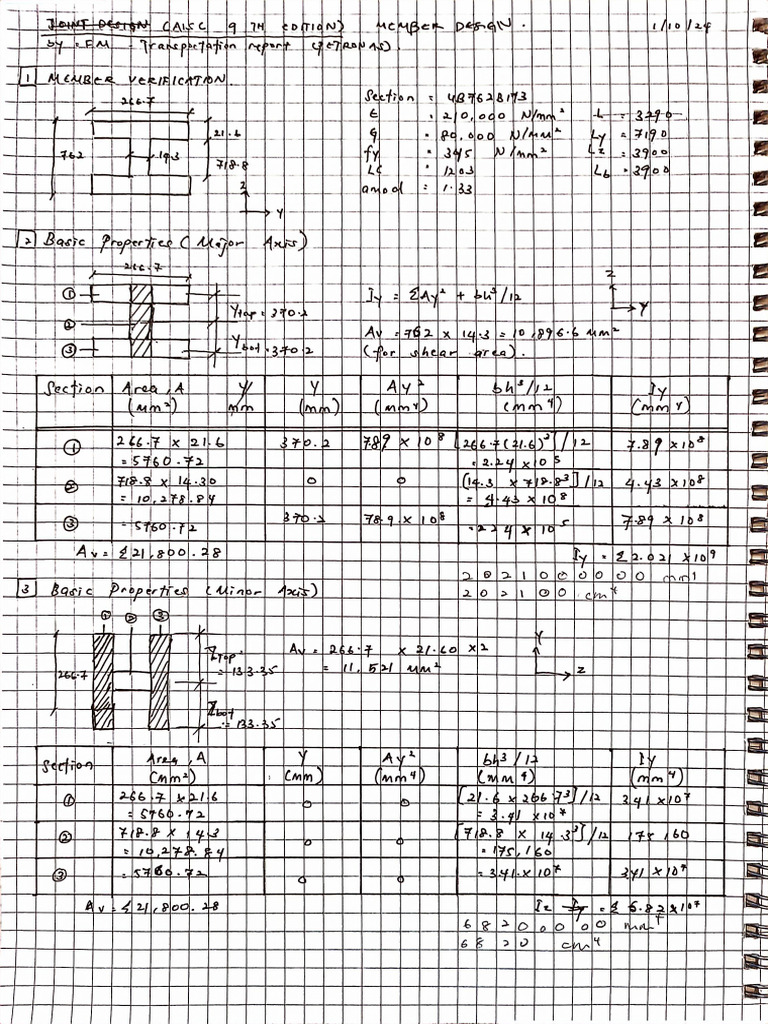 JOINT DESIGN (AISC 9TH EDITION) MEMBER DESIGN. 1/10/24
by :- FM - Transportation report (PETRONAS).
1 MEMBER VERIFICATION.
266.7
762
193
21.6
718.8
Z
Y
Section = UB762B173
E = 210,000 N/mm²
G = 80,000 N/mm²
fy = 345 N/mm²
LC = 1203
amod = 1.33
L = 3290
Ly = 7190
Lz = 3900
Lb = 3900
2 Basic Properties (Major Axis)
266.7
1
2
3
Ytop = 370.2
Ybot = 370.2
Iy = ΣAy² + bh³/12
Av = 762 x 14.3 = 10,896.6 mm²
(for shear area).
Z
Y
Section Area, A Y/ Y Ay² bh³/12 Iy
(mm²) mm (mm) (mm⁴) (mm⁴) (mm⁴)
1 266.7 x 21.6 370.2 7.89 x 10⁸ [266.7(21.6)³]/12 7.89 x 10⁸
= 5760.72 = 2.24 x 10⁵
2 718.8 x 14.30 0 0 [14.3 x 718.8³]/12 4.43 x 10⁸
= 10,278.84 = 4.43 x 10⁸
3 = 5760.72 370.2 78.9 x 10⁸ = 2.24 x 10⁵ 7.89 x 10⁸
Av = Σ21,800.28 Iy = Σ2.021 x 10⁹
2021000000 mm⁴
202100 cm⁴
3 Basic Properties (Minor Axis)
1 2 3
266.7
Ztop = 133.35
Zbot = 133.35
Av = 266.7 x 21.60 x2
= 11,521 mm²
Y
Z
Section Area, A Y Ay² bh³/12 Iy
(mm²) (mm) (mm⁴) (mm⁴) (mm⁴)
1 266.7 x 21.6 0 0 [21.6 x 266.7³]/12 3.41 x 10⁷
= 5760.72 = 3.41 x 10⁷
2 718.8 x 14.3 0 0 [718.8 x 14.3³]/12 175,160
= 10,278.84 = 175,160
3 = 5760.72 0 0 = 3.41 x 10⁷ 3.41 x 10⁷
Av = Σ21,800.28 Iz Iy = Σ6.82 x 10⁷
68200000 mm⁴
6820 cm⁴